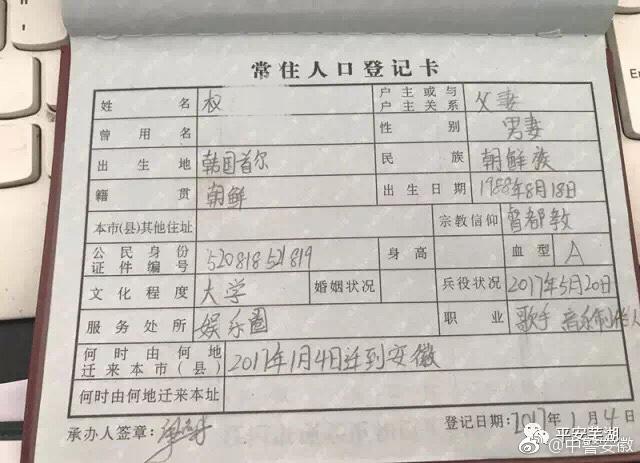 常住人口登记卡
姓名 权 户主或与户主关系 父妻
曾用名 性别 男妻
出生地 韩国首尔 民族 朝鲜族
籍贯 朝鲜 出生日期 1988年8月18日
本市(县)其他住址 宗教信仰 教
公民身份证件编号 520818521819 身高 血型 A
文化程度 大学 婚姻状况 兵役状况 2017年5月20日
服务处所 娱乐圈 职业 歌手 音乐制作人
何时由何地迁来本市(县) 2017年1月4日迁到安徽
何时由何地迁来本址
承办人签章: 登记日期:2017年1月4日
平安芜湖
@中警安徽